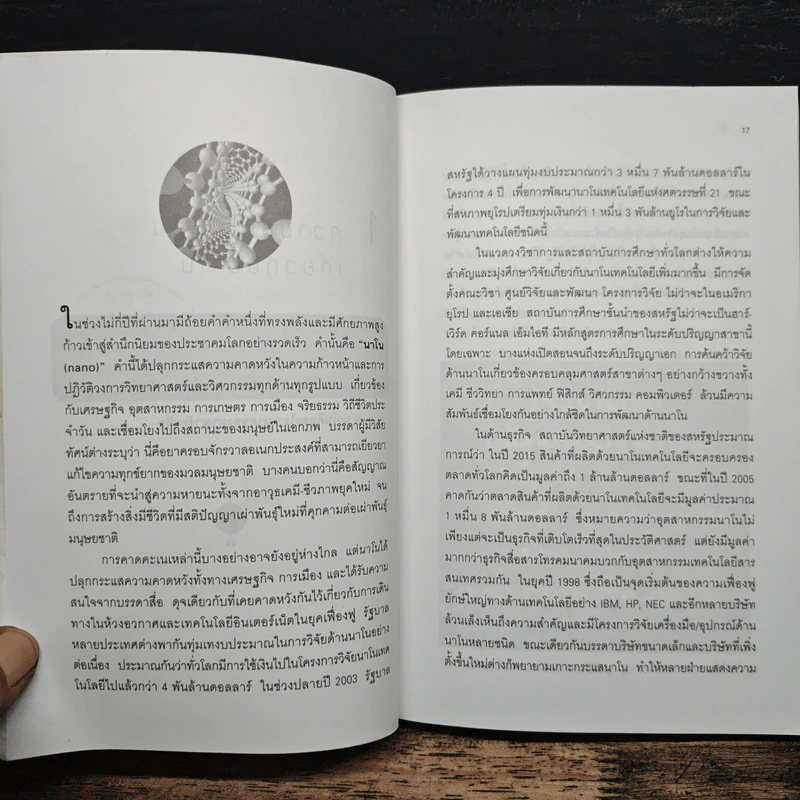 ในช่วงไม่กี่ปีที่ผ่านมามีถ้อยคำคำหนึ่งที่ทรงพลังและมีศักยภาพสูง
ก้าวเข้าสู่สำนึกนิยมของประชาคมโลกอย่างรวดเร็ว คำนั้นคือ “นาโน
(nano)” คำนี้ได้ปลุกกระแสความคาดหวังในความก้าวหน้าและการ
ปฏิวัติวงการวิทยาศาสตร์และวิศวกรรมทุกด้านทุกรูปแบบ เกี่ยวข้อง
กับเศรษฐกิจ อุตสาหกรรม การเกษตร การเมือง จริยธรรม วิถีชีวิตประ
จำวัน และเชื่อมโยงไปถึงสถานะของมนุษย์ในเอกภพ บรรดาผู้มีวิสัย
ทัศน์ต่างระบุว่า นี่คือยาครอบจักรวาลอเนกประสงค์ที่สามารถเยียวยา
แก้ไขความทุกข์ยากของมวลมนุษยชาติ บางคนบอกว่านี่คือสัญญาณ
อันตรายที่จะนำสู่ความหายนะทั้งจากอาวุธเคมี-ชีวภาพยุคใหม่ จน
ถึงการสร้างสิ่งมีชีวิตที่มีสติปัญญาเผ่าพันธุ์ใหม่ที่คุกคามต่อเผ่าพันธุ์
มนุษยชาติ
การคาดคะเนเหล่านี้บางอย่างอาจยังอยู่ห่างไกล แต่นาโนได้
ปลุกกระแสความคาดหวังทั้งทางเศรษฐกิจ การเมือง และได้รับความ
สนใจจากบรรดาสื่อ ดุจเดียวกับที่เคยคาดหวังกันไว้เกี่ยวกับการเดิน
ทางในห้วงอวกาศและเทคโนโลยีอินเตอร์เน็ตในยุคเฟื่องฟู รัฐบาล
หลายประเทศต่างพากันทุ่มเทงบประมาณในการวิจัยด้านนาโนอย่าง
ต่อเนื่อง ประมาณกันว่าทั่วโลกมีการใช้เงินไปในโครงการวิจัยนาโนเทค
โนโลยีไปแล้วกว่า 4 พันล้านดอลลาร์ ในช่วงปลายปี 2003 รัฐบาล
17
สหรัฐได้วางแผนทุ่มงบประมาณกว่า 3 หมื่น 7 พันล้านดอลลาร์ใน
โครงการ 4 ปี เพื่อการพัฒนานาโนเทคโนโลยีแห่งศตวรรษที่ 21 ขณะ
ที่สหภาพยุโรปเตรียมทุ่มเงินกว่า 1 หมื่น 3 พันล้านยูโรในการวิจัยและ
พัฒนาเทคโนโลยีชนิดนี้
ในแวดวงวิชาการและสถาบันการศึกษาทั่วโลกต่างให้ความ
สำคัญและมุ่งศึกษาวิจัยเกี่ยวกับนาโนเทคโนโลยีเพิ่มมากขึ้น มีการจัด
ตั้งคณะวิชา ศูนย์วิจัยและพัฒนา โครงการวิจัย ไม่ว่าจะในอเมริกา
ยุโรป และเอเชีย สถาบันการศึกษาชั้นนำของสหรัฐไม่ว่าจะเป็นฮาร์-
เวิร์ด คอร์แนล เอ็มไอที มีหลักสูตรการศึกษาในระดับปริญญาสาขานี้
โดยเฉพาะ บางแห่งเปิดสอนจนถึงระดับปริญญาเอก การค้นคว้าวิจัย
ด้านนาโนเกี่ยวข้องครอบคลุมศาสตร์สาขาต่างๆ อย่างกว้างขวางทั้ง
เคมี ชีววิทยา การแพทย์ ฟิสิกส์ วิศวกรรม คอมพิวเตอร์ ล้วนมีความ
สัมพันธ์เชื่อมโยงกันอย่างใกล้ชิดในการพัฒนาด้านนาโน
ในด้านธุรกิจ สถาบันวิทยาศาสตร์แห่งชาติของสหรัฐประมาณ
การณ์ว่า ในปี 2015 สินค้าที่ผลิตด้วยนาโนเทคโนโลยีจะครอบครอง
ตลาดทั่วโลกคิดเป็นมูลค่าถึง 1 ล้านล้านดอลลาร์ ขณะที่ในปี 2005
คาดกันว่าตลาดสินค้าที่ผลิตด้วยนาโนเทคโนโลยีจะมีมูลค่าประมาณ
1 หมื่น 8 พันล้านดอลลาร์ ซึ่งหมายความว่าอุตสาหกรรมนาโนไม่
เพียงแต่จะเป็นธุรกิจที่เติบโตเร็วที่สุดในประวัติศาสตร์ แต่ยังมีมูลค่า
มากกว่าธุรกิจสื่อสารโทรคมนาคมบวกกับอุตสาหกรรมเทคโนโลยีสาร
สนเทศรวมกัน ในยุคปี 1998 ซึ่งถือเป็นจุดเริ่มต้นของความเฟื่องฟู
ยักษ์ใหญ่ทางด้านเทคโนโลยีอย่าง IBM, HP, NEC และอีกหลายบริษัท
ล้วนเล็งเห็นถึงความสำคัญและมีโครงการวิจัยเครื่องมือ/อุปกรณ์ด้าน
นาโนหลายชนิด ขณะเดียวกันบรรดาบริษัทขนาดเล็กและบริษัทที่เพิ่ง
ตั้งขึ้นใหม่ต่างก็พยายามเกาะกระแสนาโน ทำให้หลายฝ่ายแสดงความ